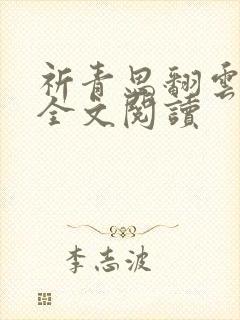 祈青思翻雲
全文閱讀
李志波